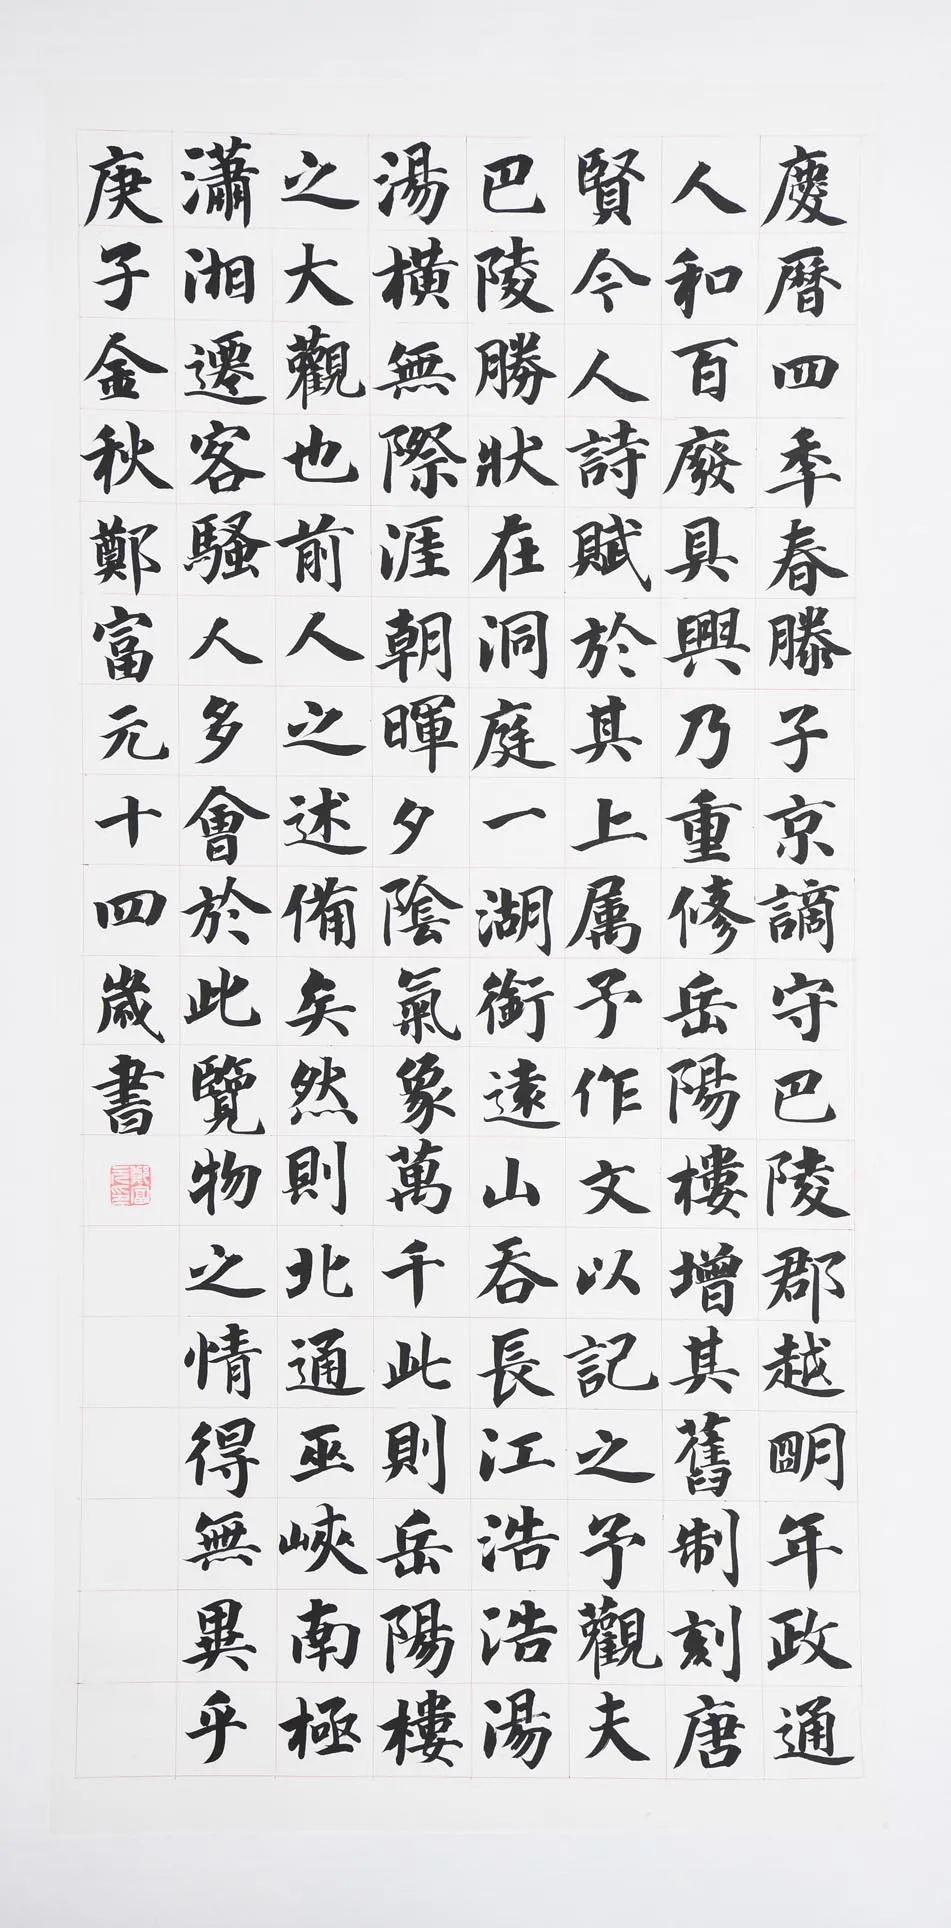 慶曆四季春滕子京謫守巴陵郡越明年政通
人和百廢具興乃重修岳陽樓增其舊制刻唐
賢今人詩賦於其上属予作文以記之予觀夫
巴陵勝狀在洞庭一湖銜遠山吞長江浩浩湯
湯橫無際涯朝暉夕陰氣象萬千此則岳陽樓
之大觀也前人之述備矣然則北通巫峽南極
瀟湘遷客騷人多會於此覽物之情得無異乎
庚子金秋鄭富元十四歲書